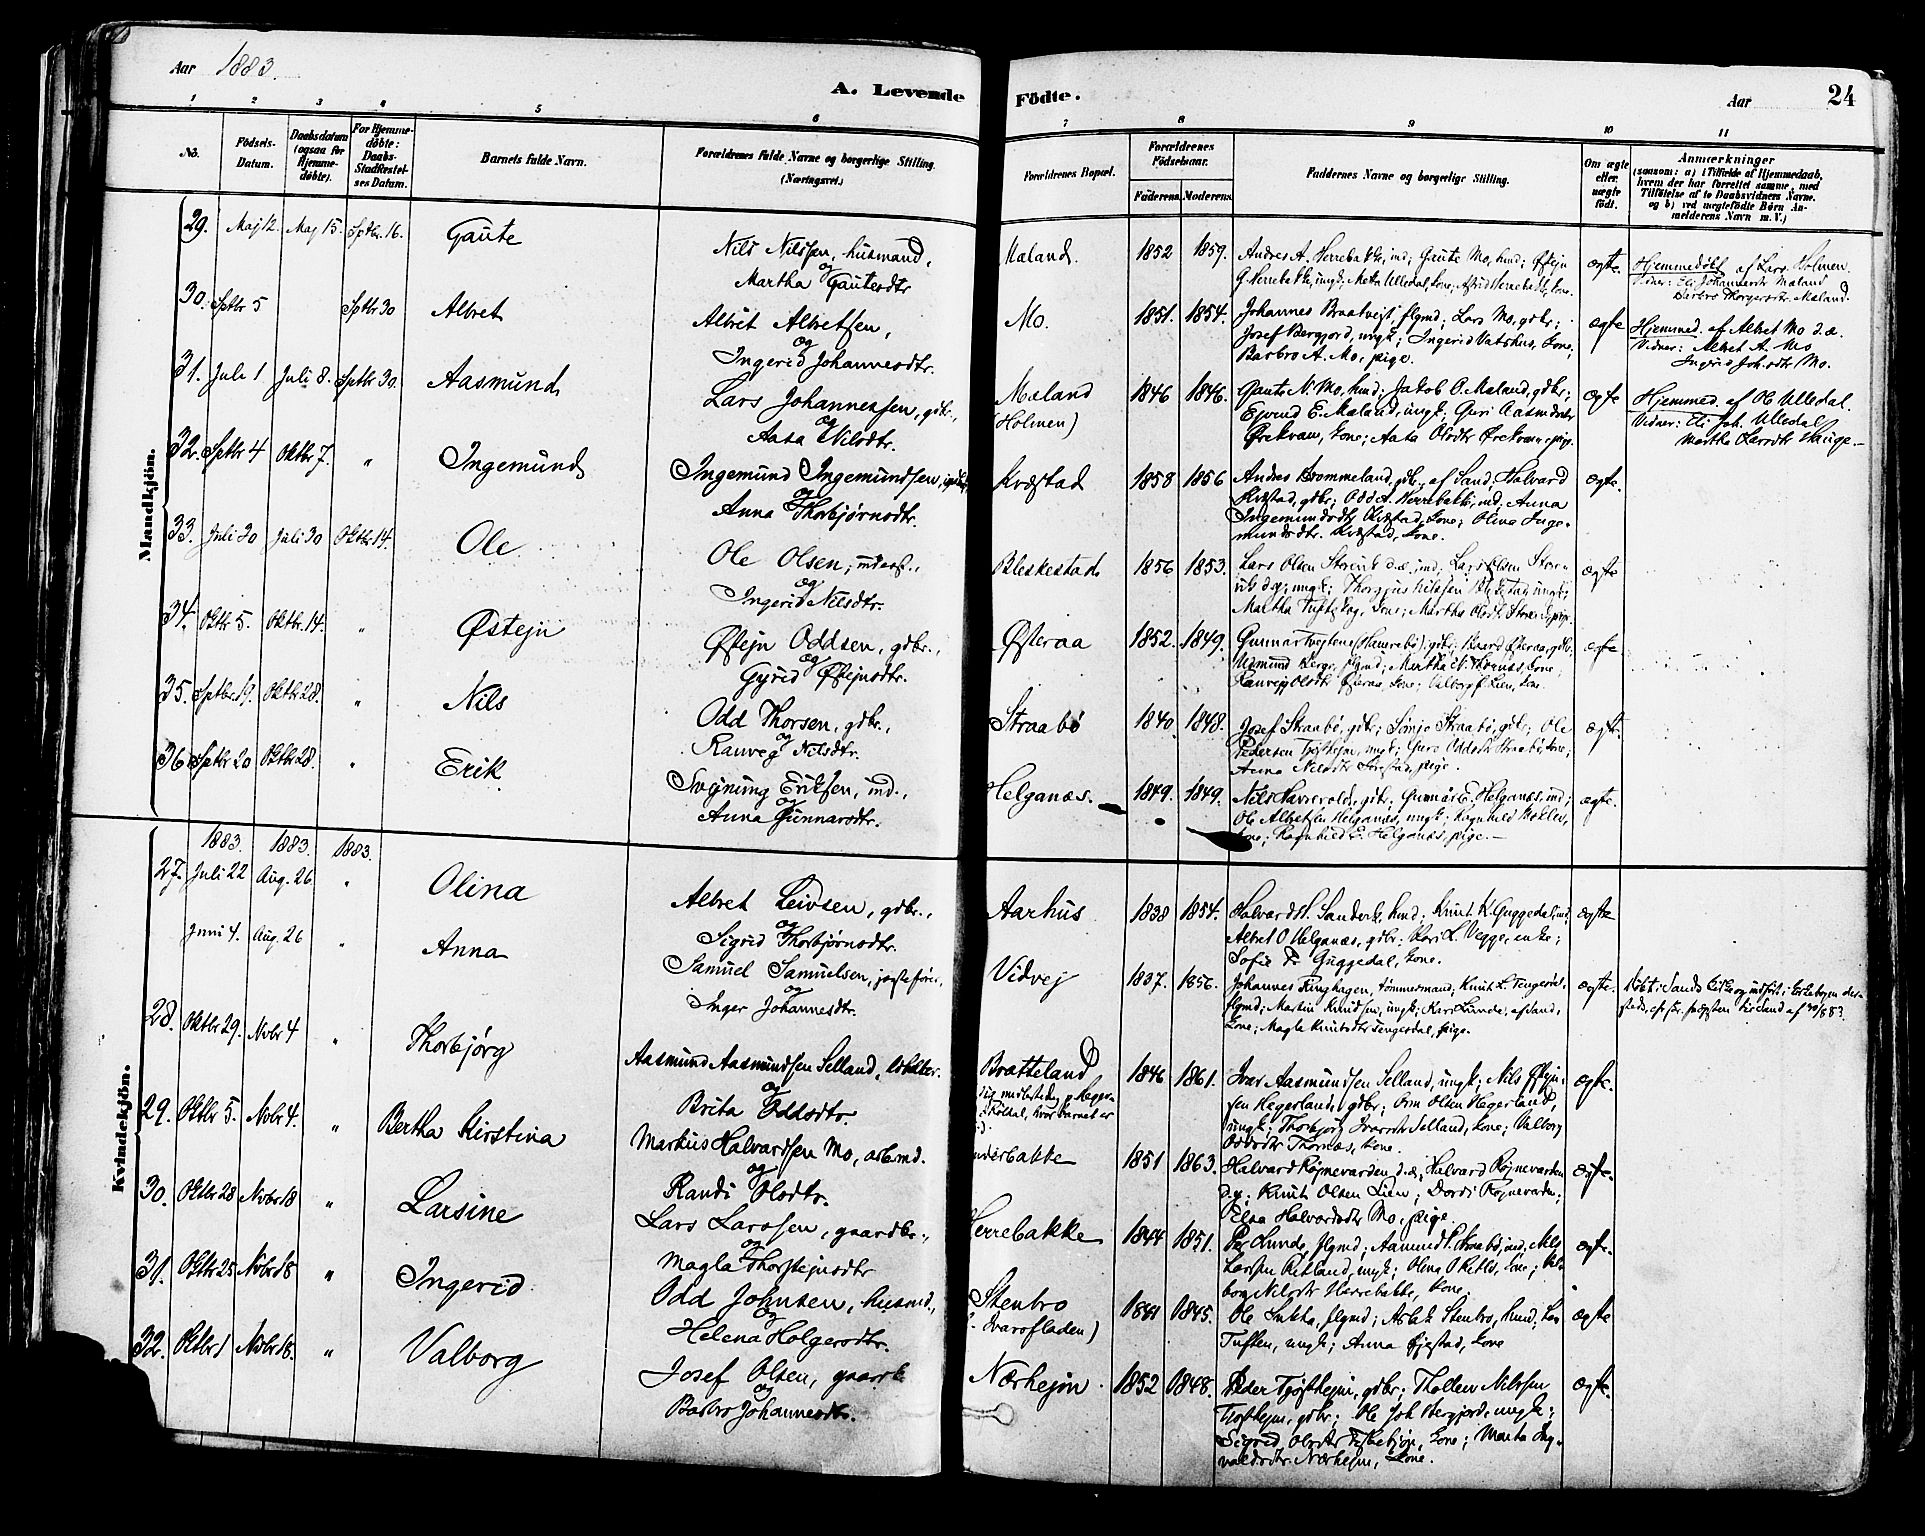 Aar 1883.
A. Levende
Födte.
Aar
24
1 2 3 4 5 6
7 8 9 10 11
No.
Födsels-
Datum.
Daabsdatum
(ogsaa for
Hjemme-
döbte).
For Hjemme-
döbte:
Daabs-
Stadfæstel-
ses Datum.
Barnets fulde Navn.
Forældrenes fulde Navne og borgerlige Stilling.
(Næringsvei.)
Forældrenes Bopæl.
Forældrenes
Födselsaar.
Faderens. Moderens.
Faddernes Navne og borgerlige Stilling.
Om ægte
eller
uægte
födt.
Anmærkninger
(saasom: a) i Tilfælde af Hjemmedaab,
hvem der har forrettet samme, med
Tilföielse af to Daabsvidners Navne,
og b) ved uægtefödte Börn An-
melderens Navn m. V.)
Mandkjön.
29. Maj 12. Maj 15. Sptbr. 16. Gaute
Nils Nilssen, husmand,
og
Martha Gautesdtr
Maland. 1852 1859.
Andres A. Herrebakke, ind; Gaute Mo, husd; Østejn
G. Herrebakke, ungk; Meta Ulledal, kone; Herrebakke, kone.
ægte.
Hjemmedøbt af Lars Holmen.
Vidner: Eli Johannesdtr Maland
Barbro Thorgersdtr. Maland.
30. Sptbr 5 Sptbr 30 Albret
Albret Albretsen,
og
Ingerid Johannesdtr.
Mo. 1851. 1854.
Johannes Braatvejt, flgmd; Lars Mo, gdbr;
Josef Bergjord, ungk; Ingerid Vatshus, kone;
Barbro A. Mo, pige.
ægte
Hjemmed. af Albret Mo d.æ.
Vidner: Albret A. Mo
Ingrid Johsdtr Mo.
31. Juli 1 Juli 8. Sptbr 30. Aasmund
Lars Johannessen, gdbr.,
og
Aasa Nilsdtr.
Maland
(Holmen)
1846 1846.
Gaute N. Mo, husd; Jakob O. Maland, gdbr;
Ejvind E. Maland, ungk; Guri Aasmdsdtr
Ørekvam, kone; Aasa Olsdtr Ørekvam, pige.
ægte
Hjemmed. af Ob Ulledal.
Vidner: Eli Joh. Ulledal
Martha Larsdtr Hauge.
32. Sptbr 4 Oktbr 7. " Ingemund
Ingemund Ingemundsen,
og
Anna Thorbjørnsdtr.
Kvæstad 1858 1856
Andres Brommeland, gdb. af Sand, Halvard
Kvæstad, gdbr; Odd A. Herrebakke, ind, Anna
Ingemundsdtr Kvæstad, kone; Oline Inge-
mundsdtr. Kvæstad, kone.
ægte.
33. Juli 20 Juli 30 Oktbr 14. Ole
Ole Olsen, inderst.,
og
Ingerid Nilsdtr.
Bleskestad 1856 1853.
Lars Olsen d.æ., ind; Lars Olsen
d.y., ungk; Nilssen ungk;
Martha kone; Martha Olsdtr pige.
ægte
34. Oktbr 5. Oktbr. 14. " Østejn
Østejn Oddsen, gdbr.,
og
Gyrid Østejnsdtr.
Østeraa 1852. 1849.
Gunnar Tvejtene (Hamrebø), gdbr; Baard Østeraa, gdb.
Berge, flgmd; Martha N. Thornæs, kone,
Ranvejg Olsdtr Østeraa, kone; Valborg Lien, kone.
ægte
35. Sptbr. 19. Oktbr 28. " Nils
Odd Thorsen, gdbr.,
og
Ranveg Nilsdtr.
Straabø 1840. 1848.
Josef Straabø, gdbr; Straabø, gdbr; Ole
Pedersen Tjøsthejm, ungk; Guro Oddsdtr Straabø, kone;
Anna Nilsdtr pige.
ægte.
36 Sptbr 20 Oktbr 28. " Erik
Svejnung Eriksen, ind.,
og
Anna Gunnarsdtr.
Helganæs. 1849. 1849.
Nils Havrevold, gdbr; Gunnar E. Helganæs, ind;
Ole Albretsen Helganæs, ungk;
kone; Ragnhild E. Helganæs, pige.
ægte.
Kvindekjön.
1883. 1883. 1883.
27. Juli 22 Aug. 26 " Olina
Albret Leivsen, gdbr.,
og
Sigrid Thorbjørnsdtr.
Aarhus 1838 1854.
Halvard Sandvik, husd; Knut K. Guggedal, ind;
Albret O Helganæs, gdbr; Kari L. Vegge, enke;
Sofie Guggedal, kone.
ægte
Juni 4. Aug. 26 " Anna
Samuel Samuelsen, jagtefører,
og
Inger Johannesdtr.
Vidvej 1837. 1856.
Johannes Ringhagen, tømmermand; Knut L. Tengesdal,
flgmd; Martin Knudsen, ungk; Kari Lunde, af Sand,
kone; Magla Knutsdtr Tengesdal, pige.
ægte.
Døbt i Sands kirke og indført i kirkebogen der-
steds, Sand af 30/8 83.
28. Oktbr 29. Novbr 4 " Thorbjørg
Aasmund Aasmundsen Selland,
og
Brita Oddsdtr.
Bratteland
Røldal, hvor barnet er
1846 1861.
Ivar Aasmundsen Selland, ungk; Nils Østejn-
sen Hegerland, gdbr; Orm Olsen Hegerland,
ungk; Thorbjørg Ivarsdtr Selland, kone; Valborg
Oddsdtr Thornæs, kone.
ægte.
29. Oktbr 5. Novbr 4. " Bertha Kirstina
Markus Halvardsen Mo, arbmd.
og
Randi Olsdtr.
Underbakke 1851 1863.
Halvard Røjnevarden d.æ; Halvard Røjnevarden
d.y; Knut Olsen Lien; Dordi Røjnevarden;
Elsa Halvardsdtr Mo, pige.
ægte.
30. Oktbr 28 Novbr 18 " Larsine
Lars Larssen, gaardbr.,
og
Magla Thorstejnsdtr
Herrebakke 1844 1851.
Per Lunde, flgmd; Aamund L. Straabø, ind, Nils
Larsen Østland, ungk; Olina kone;
Nilsdtr Herrebakke, kone.
ægte.
31. Oktbr 25 Novbr 18 " Ingerid
Odd Johnsen, husmd.,
og
Helena Holgersdtr.
Stenbro
Ivarsfladen)
1841 1845.
Ole flgmd; Aslak Stenbro, husd;
Tuften, ungk; Anna kone
ægte
32. Oktbr 1 Novbr 18. " Valborg
Josef Olsen, gaardb
og
Barbro Johannesdtr.
Nærhejm 1852 1848.
Peder Tjøsthejm, gdbr; Tholleiv Nilssen
Tjøsthejm, gdbr; Ole Joh. Bergjord, ungk;
Sigrid Olsdtr kone; Marta Ing-
valdsdtr. Nærhejm, kone.
ægte.